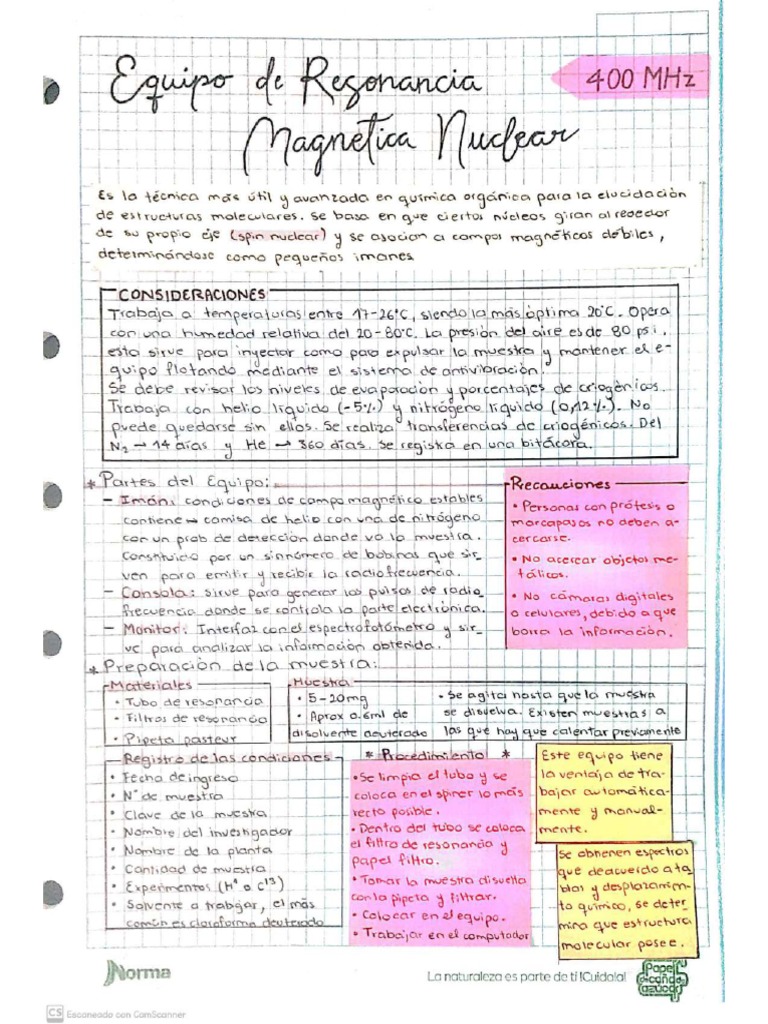 Equipo de Resonancia
400 MHz
Magnetica Nuclear
Es la técnica más útil y avanzada en química orgánica para la elucidación
de estructuras moleculares. Se basa en que ciertos núcleos giran al rededor
de su propio eje (spin nuclear) y se asocian a campos magnéticos débiles,
determinándose como pequeños imanes
CONSIDERACIONES
Trabaja a temperaturas entre 17-26°C, siendo la más óptima 20°C. Opera
con una humedad relativa del 20-80°C. La presión del aire es de 80 psi,
esta sirve para inyectar como para expulsar la muestra y mantener el e-
quipo flotando mediante el sistema de antivibración.
Se debe revisar los niveles de evaporación y porcentajes de criogénicos.
Trabaja con helio líquido (-5%) y nitrógeno líquido (0,12%). No
puede quedarse sin ellos. Se realiza transferencias de criogénicos. Del
N₂ → 14 días y He → 360 días. Se registra en una bitácora.
* Partes del Equipo:
- Imán: condiciones de campo magnético estables
contiene → camisa de helio con una de nitrógeno
con un prob de detección donde va la muestra.
Constituido por un sinnúmero de bobinas que sir-
ven para emitir y recibir la radiofrecuencia.
- Consola: sirve para generar los pulsos de radio
frecuencia donde se controla la parte electrónica.
- Monitor: Interfaz con el espectrofotómetro y sir-
ve para analizar la información obtenida.
Precauciones
• Personas con prótesis o
marcapasos no deben a-
cercarse.
• No acercar objetos me-
tálicos.
• No cámaras digitales
o celulares, debido a que
borra la información.
* Preparación de la muestra:
Materiales
• Tubo de resonancia
• Filtros de resonancia
• Pipeta pasteur
Muestra
• 5-20mg
• Aprox 0.6ml de
disolvente deuterado
• Se agita hasta que la muestra
se disuelva. Existen muestras a
las que hay que calentar previamente
Registro de las condiciones
• Fecha de ingreso
• N° de muestra
• Clave de la muestra
• Nombre del investigador
• Nombre de la planta
• Cantidad de muestra
• Experimentos (H¹ o C¹³)
• Solvente a trabajar, el más
común es cloroformo deuterado
* Procedimiento *
• Se limpia el tubo y se
coloca en el spiner lo más
recto posible.
• Dentro del tubo se coloca
el filtro de resonancia y
papel filtro.
• Tomar la muestra disuelta
con la pipeta y filtrar.
• Colocar en el equipo.
• Trabajar en el computador
Este equipo tiene
la ventaja de tra-
bajar automática-
mente y manual-
mente.
Se obtienen espectros
que deacuerdo a ta
blas y desplazamien-
to químico, se deter
mina que estructura
molecular posee.
Norma
La naturaleza es parte de ti !Cuídala!
Papel
de caña de
azúcar
CS Escaneado con CamScanner